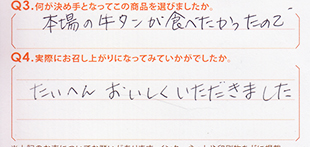 Q3.何が決め手となってこの商品を選びましたか。
本場の牛タンが食べたかったので
Q4.実際にお召し上がりになってみていかがでしたか。
たいへん おいしく いただきました